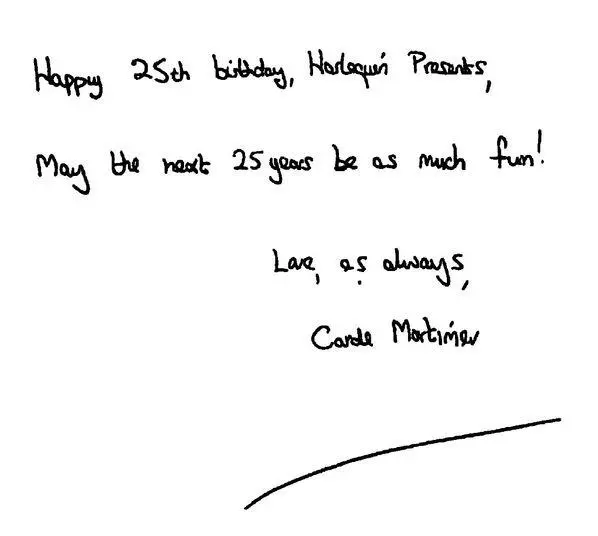 Happy 25th birthday, Harlequin Presents,
May the next 25 years be as much fun!
Love, as always,
Carole Mortimer